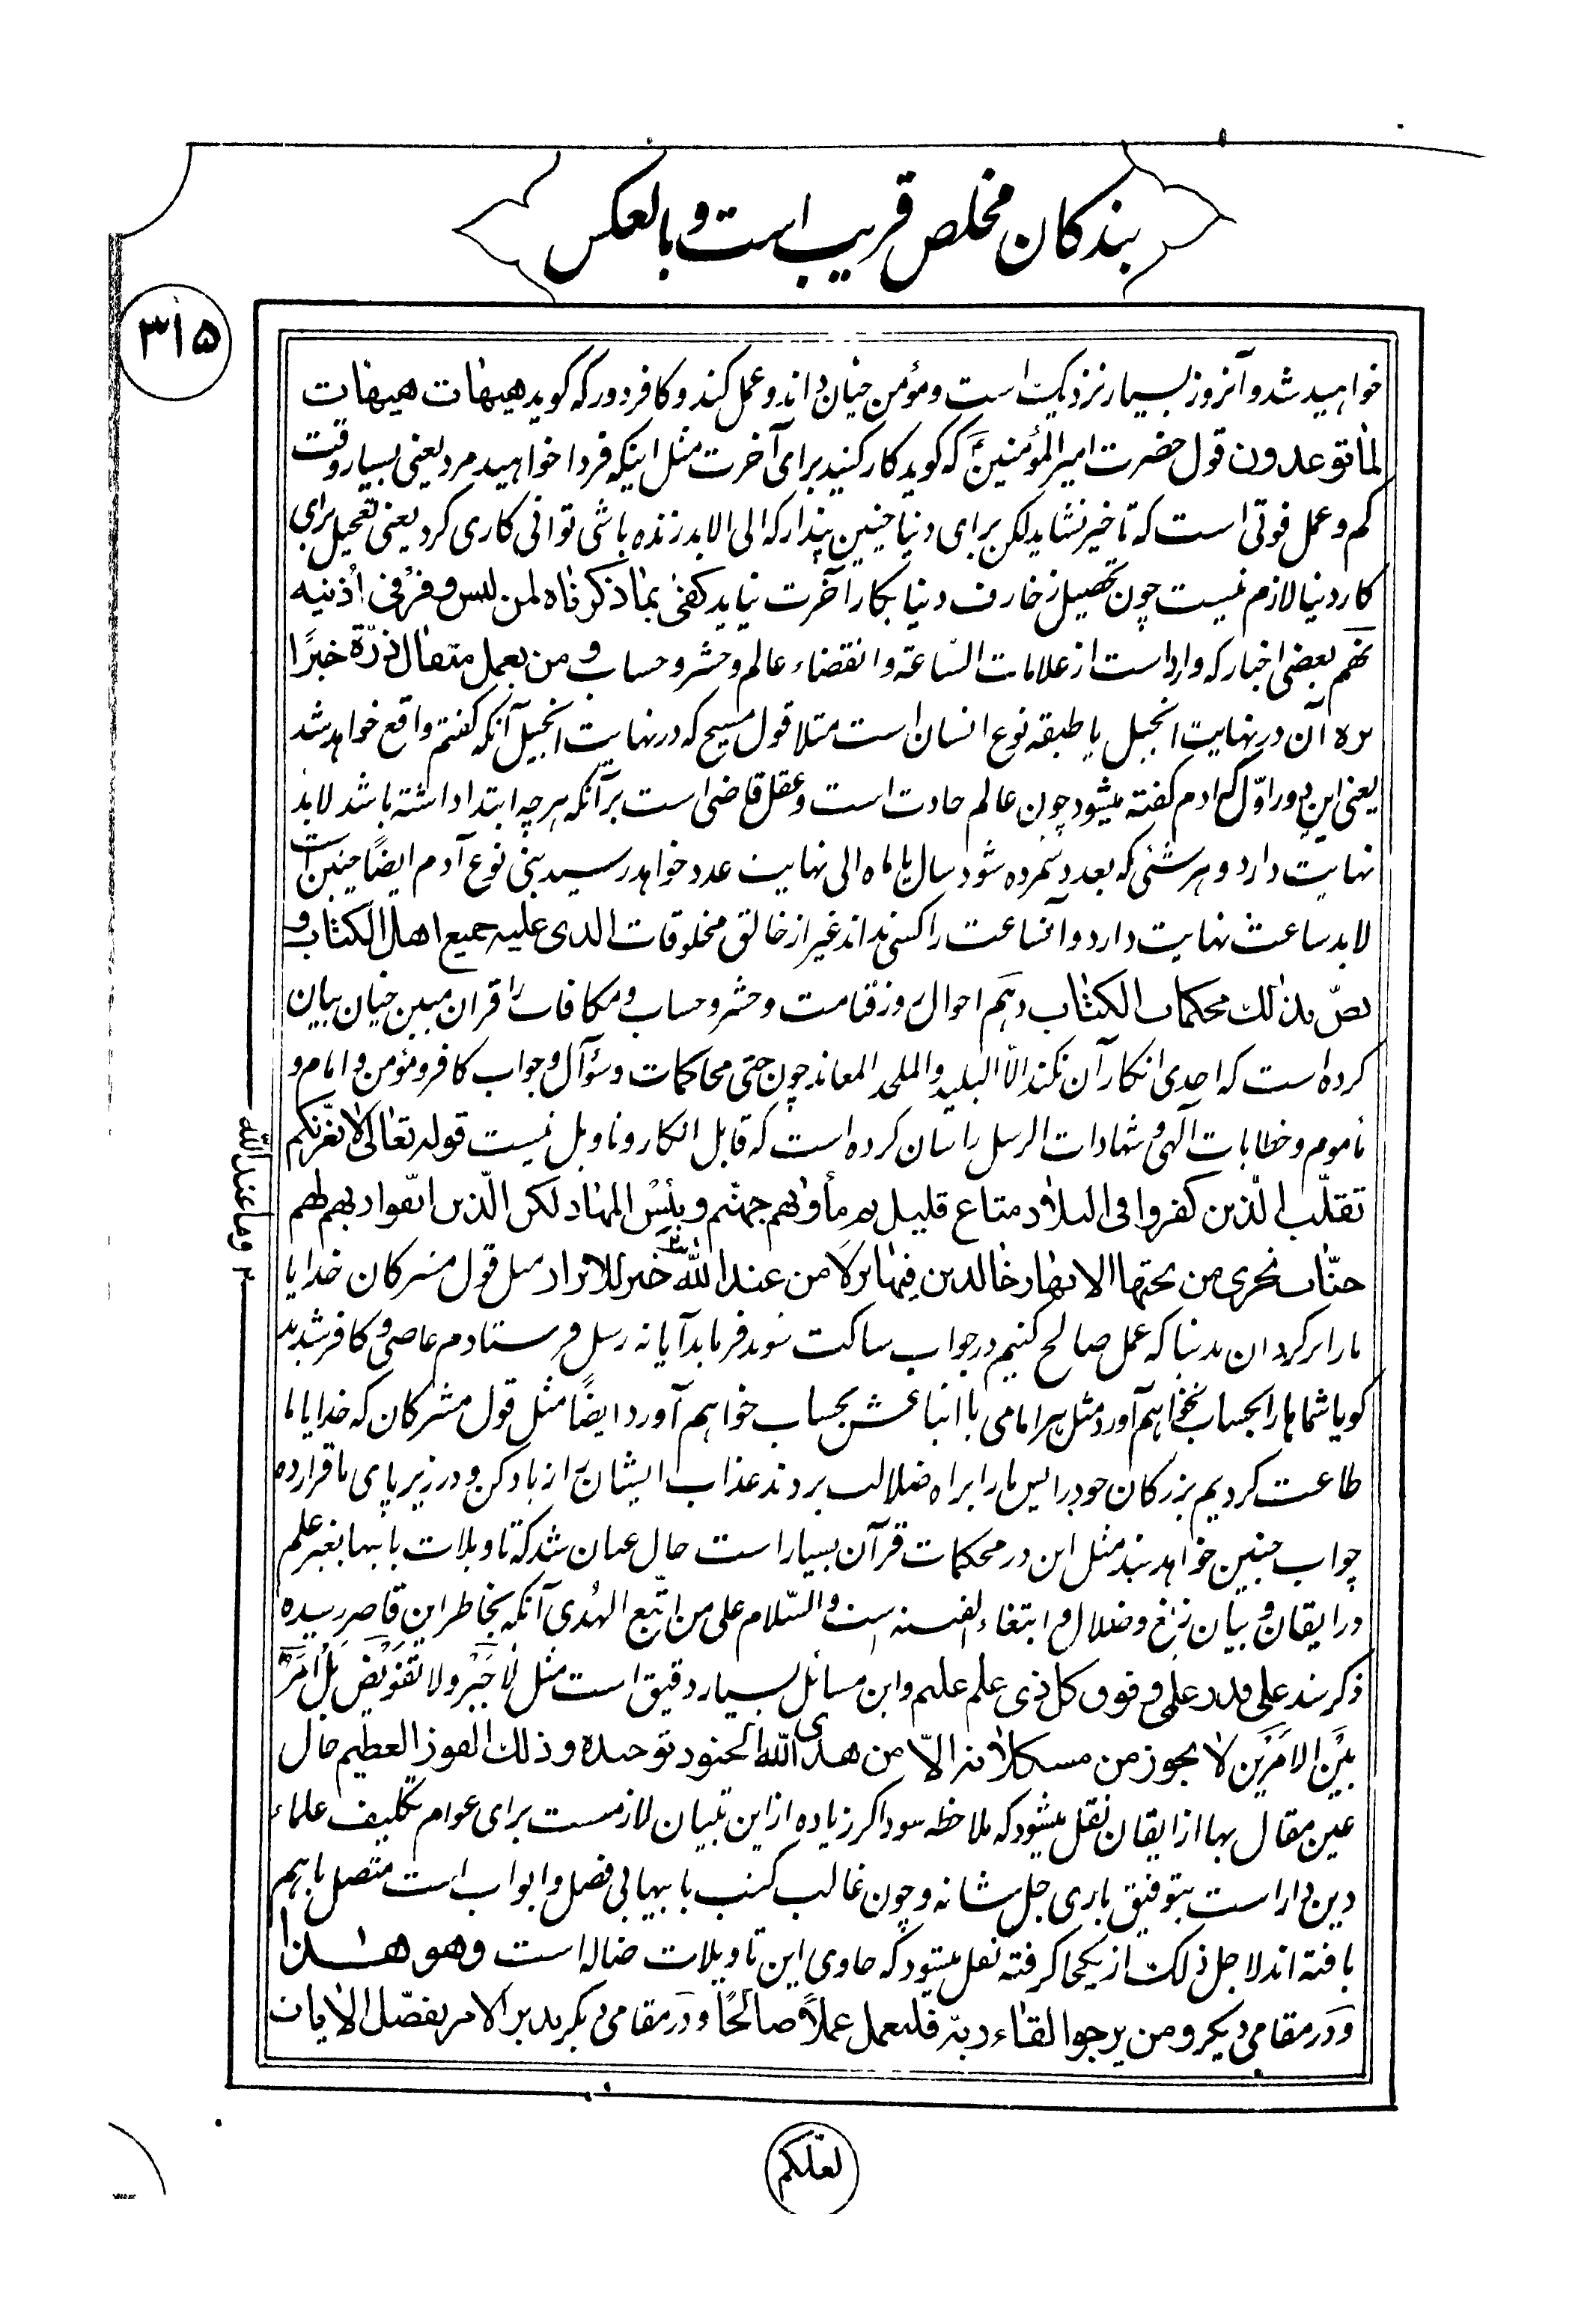 بندکان مخلص قریب است و بالعکس
۳۱۵
خواهید شد و آنروز بسیار نزدیکست است و مؤمن چنان داند و عمل کند و کافر دور که کوید هیهات هیهات
لما توعدون قول حضرت امیر المؤمنین که کوید کار کنید برای آخرت مثل اینکه فردا خواهید مرد یعنی بسیار وقت
کم و عمل فوتی است که تاخیر نشاید لکن برای دنیا چنین پندار که الی الابد زنده باشی توانی کاری کرد یعنی تعجیل برای
کار دنیا لازم نیست چون تحصیل زخارف دنیا بکار آخرت نیاید کفی بما ذکرناه لمن لیس وقر فی اُذنیه
نهم بعضی اخبار که وارد است از علامات الساعة و انقضاء عالم و حشر و حساب و من یعمل مثقال ذرّة خیرًا
یره آن در نهایت انجیل یا طبقه نوع انسان است مثلا قول مسیح که در نهایت انجیل آنکه کفتم واقع خواهد شد
یعنی این دور اوّل که ادم کفته میشود چون عالم حادث است و عقل قاضی است بر آنکه هر چه ابتدا داشته باشد لابد
نهایت دارد و هر شئی که بعدد شمرده شود سال یا ماه الی نهایت عدد خواهد رسید بنی نوع آدم ایضًا چنین است
لابد ساعت نهایت دارد و آنساعت را کسی نداند غیر از خالق مخلوقات الذی علیه جمیع اهل الکتاب و
نصّ بذالک محکمات الکتاب دهم احوال روز قیامت و حشر و حساب و مکافات را قران مبین چنان بیان
کرده است که احدی انکار آن نکند الّا البلید و الملحد المعاند چون حتی محاکمات و سؤآل و جواب کافر و مؤمن و امام و
مأموم و خطابات آلهی و شهادات الرسل را بیان کرده است که قابل انکار و تاویل نیست قوله تعالی لا یغرّنکم
تقلّب الّذین کفروا فی البلاد متاع قلیل ثم مأویهم جهنّم و بئس المهاد لکن الّذین اتّقوا ربهم لهم
جنّات تجری من تحتها الانهار خالدین فیها نزلا من عند اللّه خیر للابرار مثل قول مشرکان خدایا
و ما عند اللّه
ما را بر کردان بدنیا که عمل صالح کنیم در جواب ساکت شوند فرماید آیا نه رسل فرستادم عاصی و کافر شدید
کویا شما ها را بحساب نخواهم آورد مثل هر امامی با اتباعش بحساب خواهم آورد ایضًا مثل قول مشرکان که خدایا ما
طاعت کردیم بزرکان خود را پس ما را براه ضلالت بردند عذاب ایشان را زیاد کن و در زیر پای ما قرار ده
جواب چنین خواهد شد مثل این در محکمات قرآن بسیار است حال عیان شد که تاویلات بابیها بغیر علم
در ایقان و بیان زیغ و ضلال و ابتغاء لفتنه است و السّلام علی من اتّبع الهُدی آنکه بخاطر این قاصر رسیده
ذکر شد علی قدر علمی و فوق کل ذی علم علیم و این مسائل بسیار دقیق است مثل لا جَبْر و لا تَفْویض بَلْ اَمْرٌ
بَیْن الاَمْرَین لا یجوز من مشکلاته الّا من هدی اللّه الجنود توحیده و ذلک الفوز العظیم حال
عین مقال بها از ایقان نقل میشود که ملاحظه شود اکر زیاده از این تبیان لازمست برای عوام تکلیف علماء
دین دار است بتوفیق باری جل شانه و چون غالب کتب بابیها بی فصل و ابواب است متصل با هم
بافته اند لاجل ذلک از یکجا کرفته نقل میشود که حاوی این تاویلات ضاله است و هو هٰذا
و در مقامی دیکر و من یرجوا لقاء ربّه فلیعمل عملاً صالحًا و در مقامی دیکر یدبر الامر یفصّل الایات
لعلکم